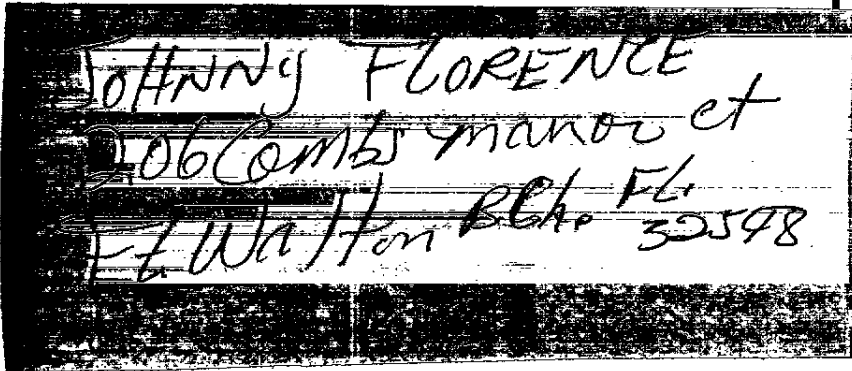 JOHNNY FLORENCE
206 Combs manor ct
Ft. Walton BCh. FL.
32548